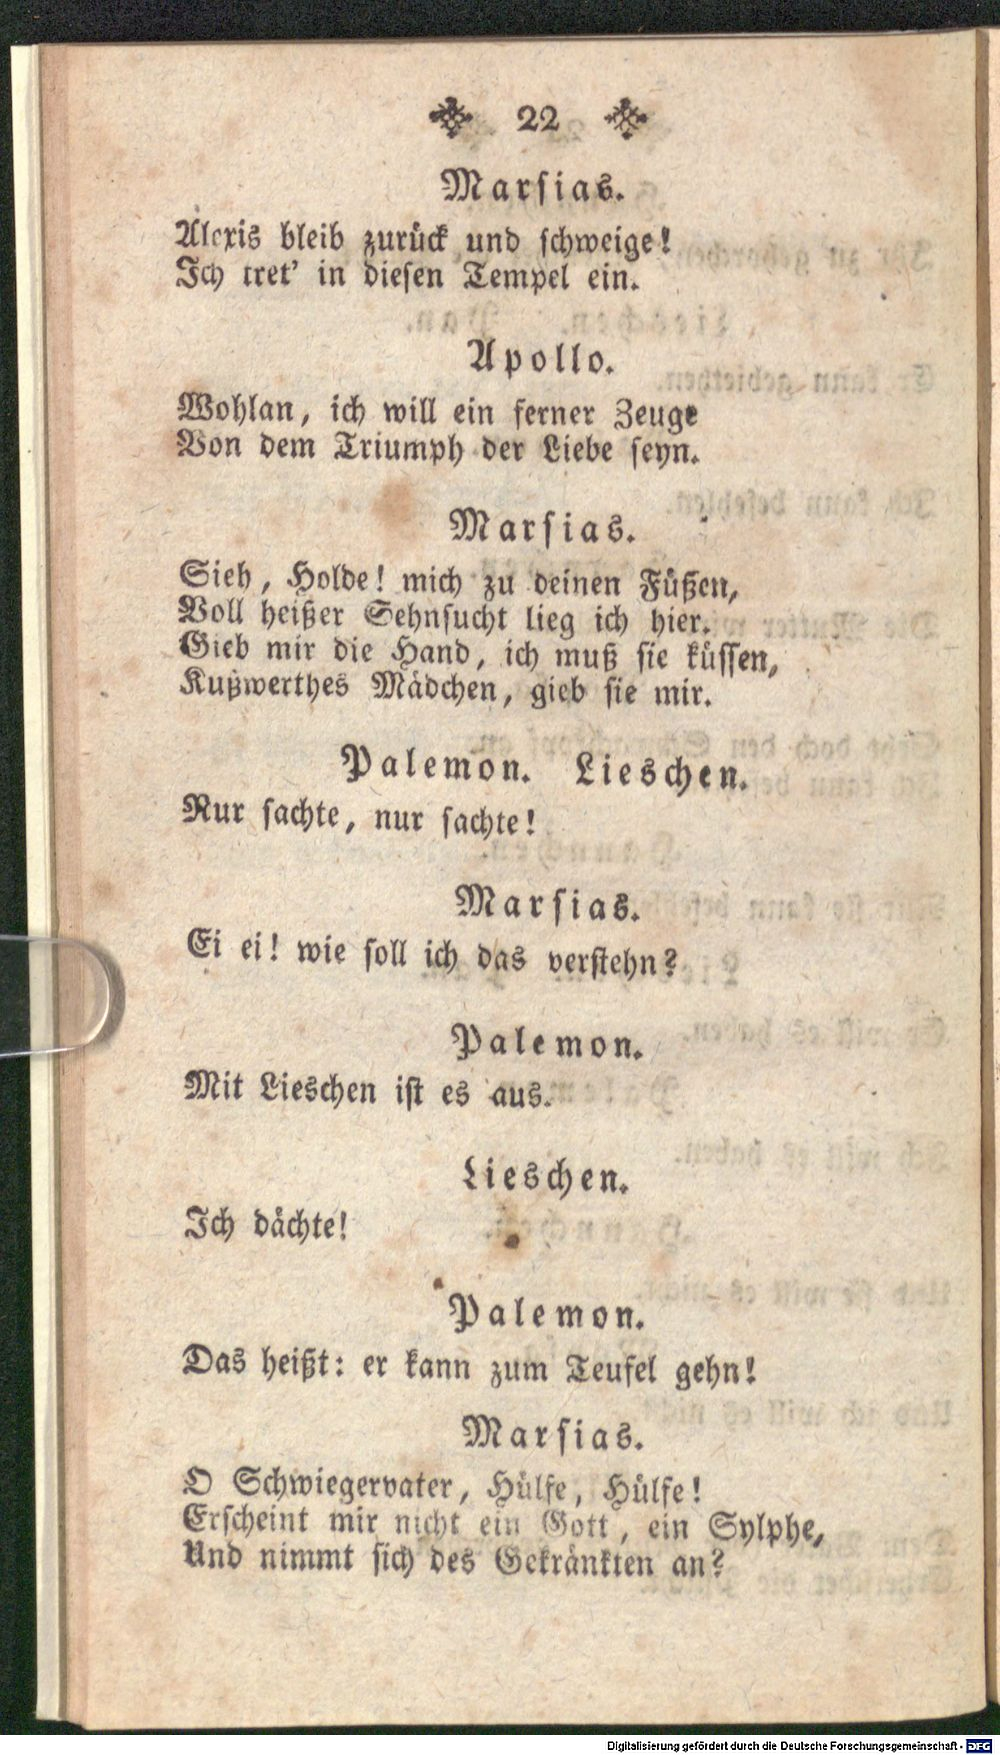 22
Marsias.
Alexis bleib zurück und schweige!
Ich tret' in diesen Tempel ein.
Apollo.
Wohlan, ich will ein ferner Zeuge
Von dem Triumph der Liebe seyn.
Marsias.
Sieh, Holde! mich zu deinen Füßen,
Voll heißer Sehnsucht lieg ich hier.
Gieb mir die Hand, ich muß sie küssen,
Kußwerthes Mädchen, gieb sie mir.
Palemon. Lieschen.
Nur sachte, nur sachte!
Marsias.
Ei ei! wie soll ich das verstehn?
Palemon.
Mit Lieschen ist es aus.
Lieschen.
Ich dächte!
Palemon.
Das heißt: er kann zum Teufel gehn!
Marsias.
O Schwiegervater, Hülfe, Hülfe!
Erscheint mir nicht ein Gott, ein Sylphe,
Und nimmt sich des Gekränkten an?
Digitalisierung gefördert durch die Deutsche Forschungsgemeinschaft - DFG